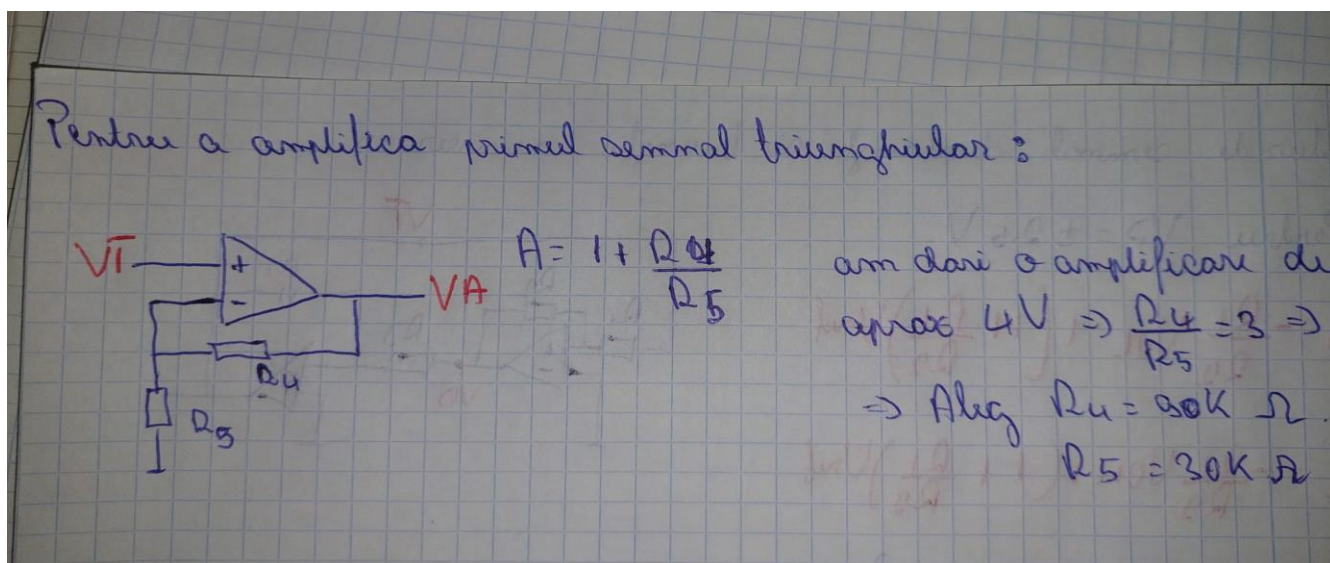 Pentru a amplifica primul semnal triunghiular :
VT + - VA
R4
R5
A = 1 + R4/R5
am dori o amplificare de
aprox 4V => R4/R5 = 3 =>
=> Aleg R4 = 90K Ω.
R5 = 30K Ω